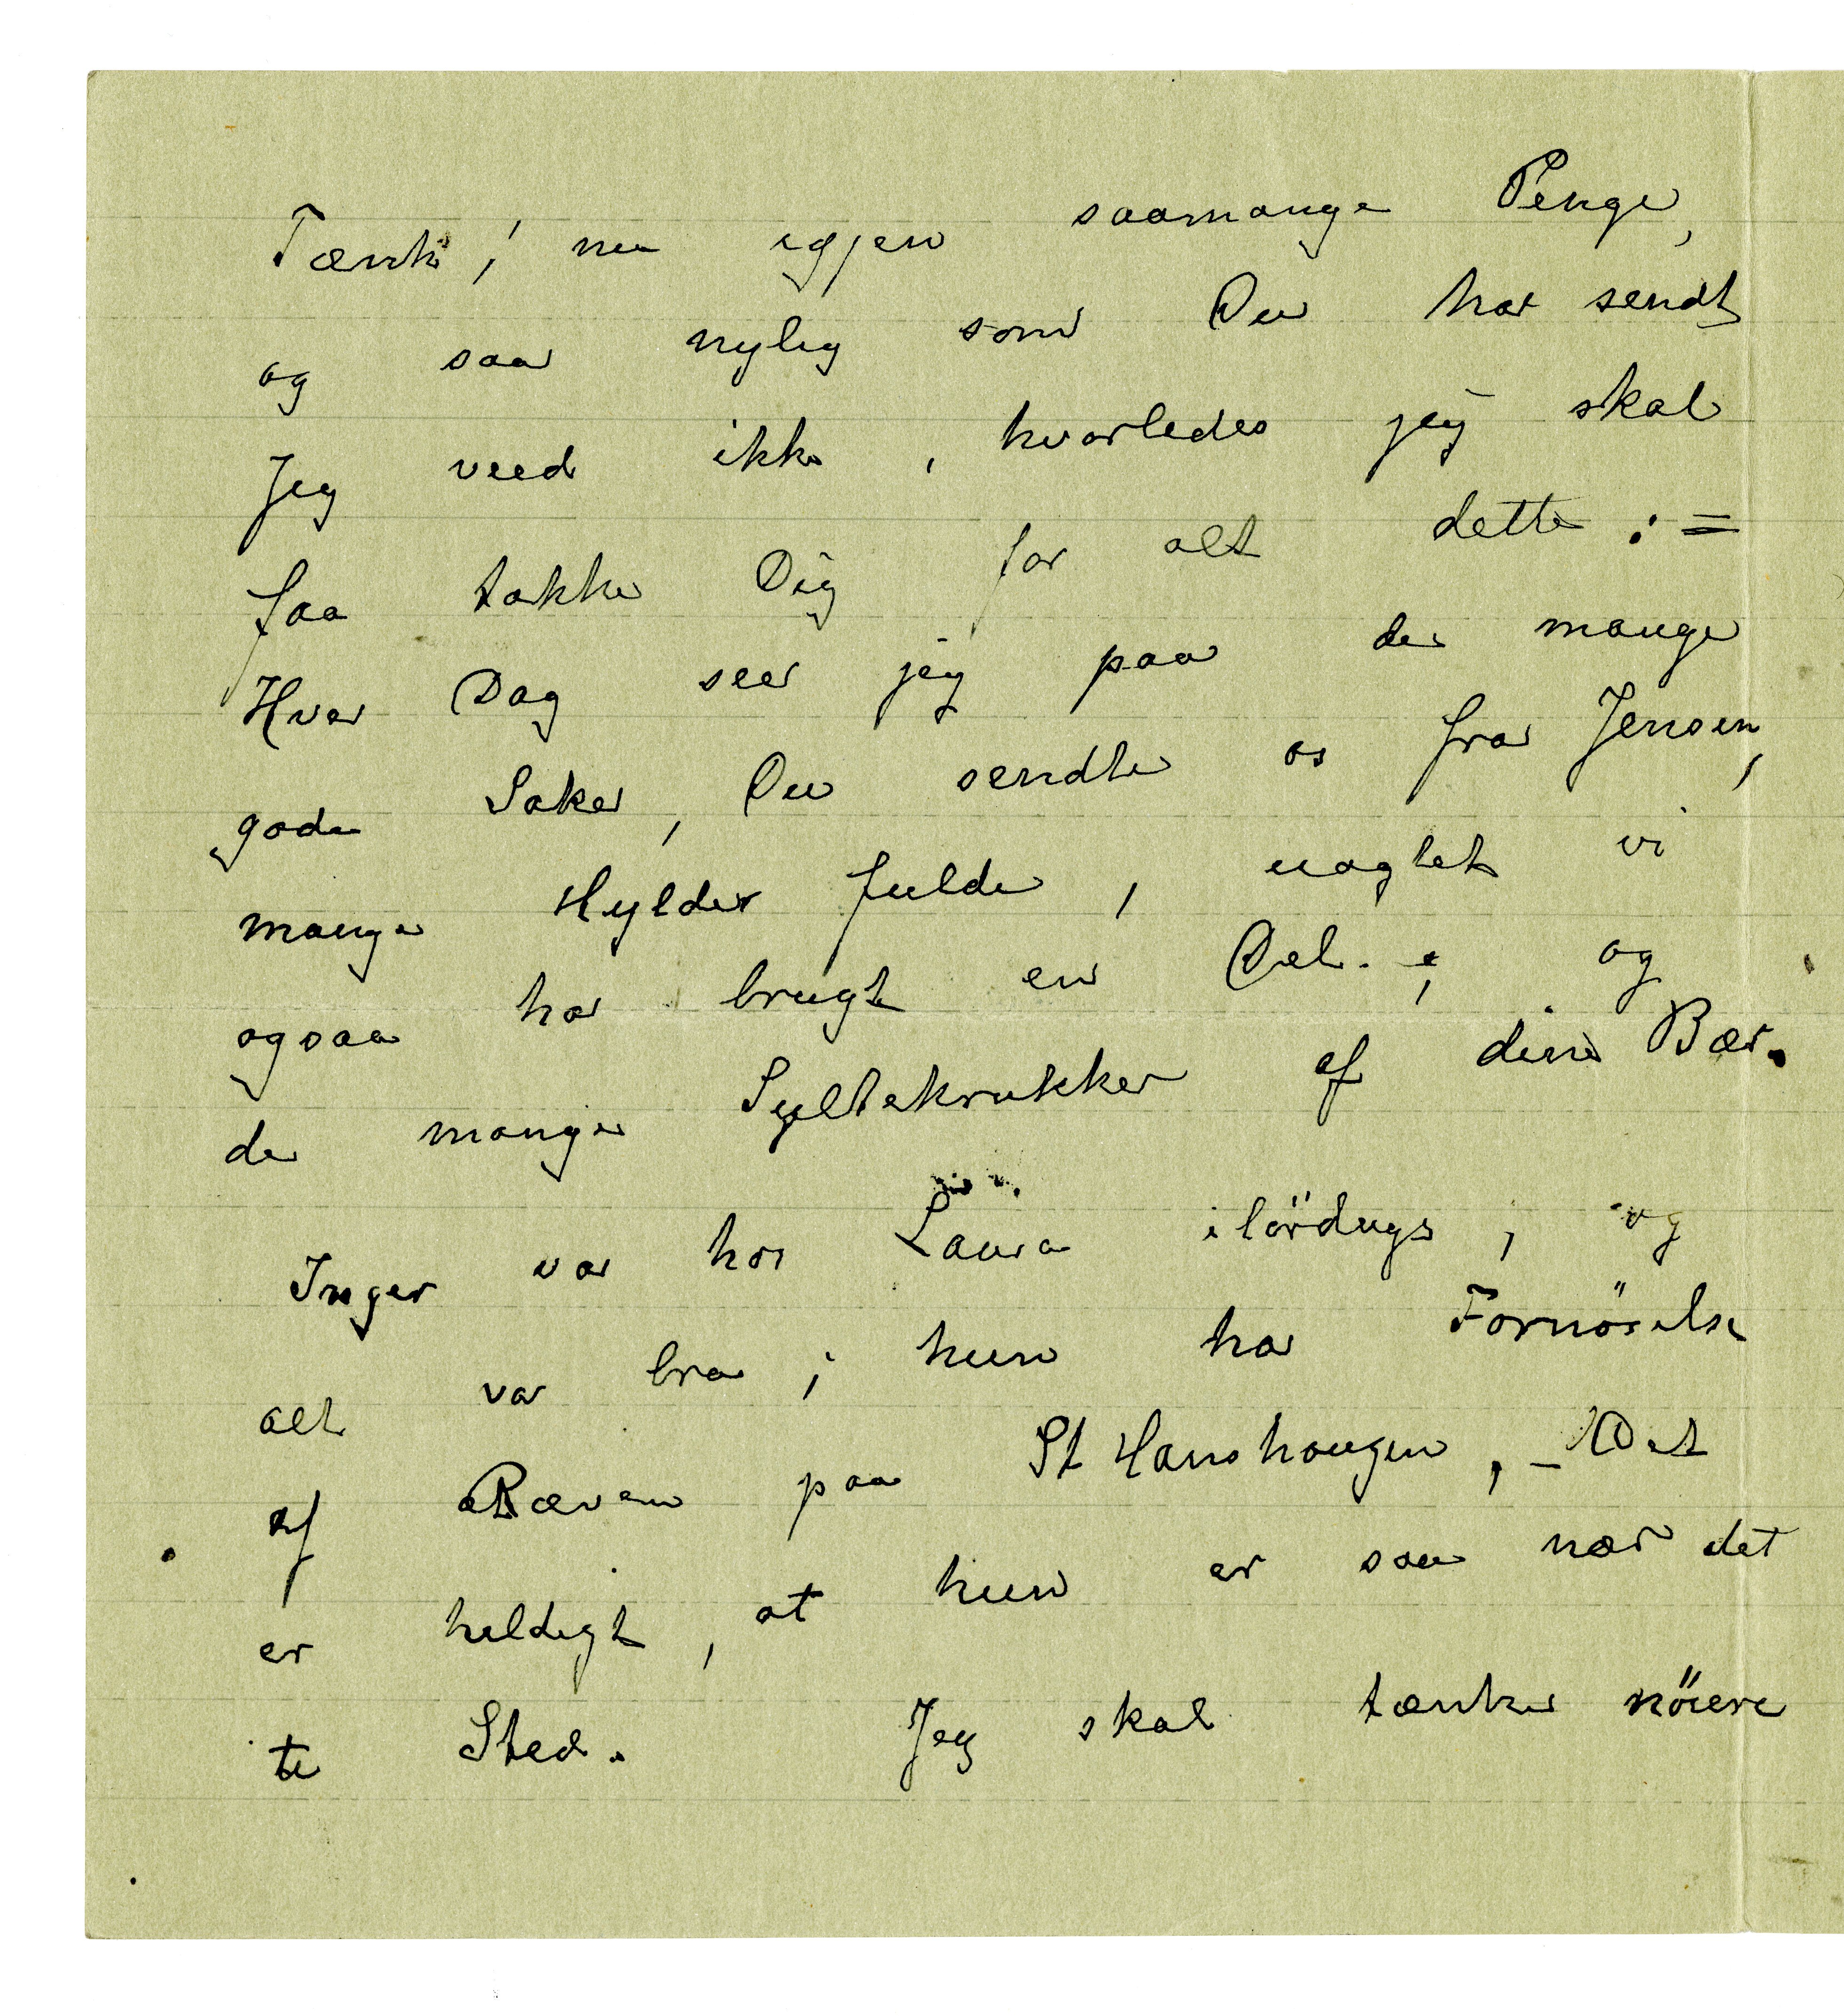 Tænk, nu igjen saamange Penge,
og saa nylig som Du har sendt
Jeg veed ikke, hvorledes jeg skal
faa takke Dig for alt dette: =
Hver Dag seer jeg paa de mange
gode Saker, Du sendte os fra Jensen,
mange Hylder fulde, uagtet vi
ogsaa har brugt en Del. ; og
de mange Syltekrukker af dine Bær.
Inger var hos Laura ilördags, og
alt var bra; hun har Fornöielse
af Ræven paa St Hanshaugen, – Det
er heldigt, at hun er saa nær det
te Sted. Jeg skal tænke nöiere